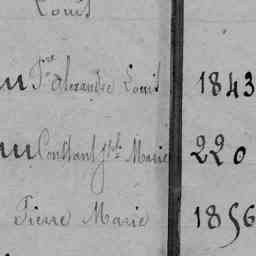 Louis
Pre Alexandre Louis 1843
Constant Jph Marie 220
Pierre Marie 1856